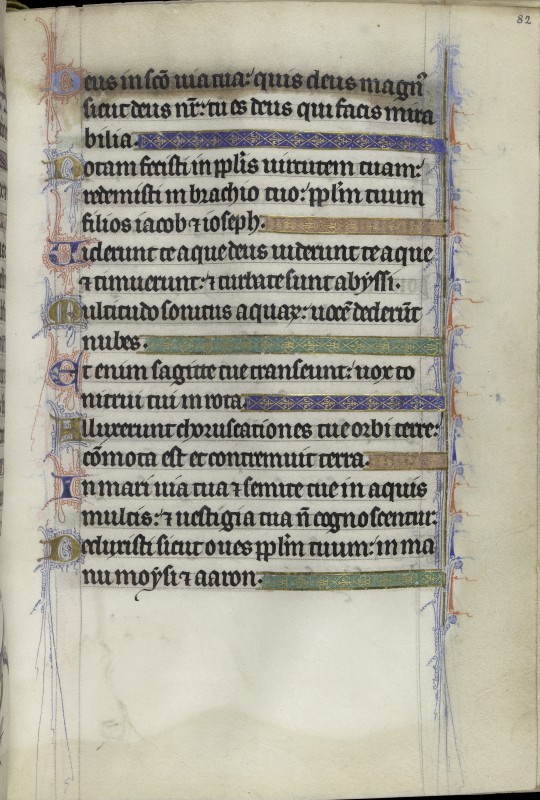 82
Deus in sc̄o uia tua: quis deus magn᾽
sicut deus nr̄: tu es deus qui facis mira
bilia.
Notam fecisti in pplīs uirtutem tuam:
redemisti in brachio tuo: pplm̄ tuum
filios iacob ⁊ ioseph.
Uiderunt te aque deus uiderunt te aque
⁊ timuerunt: ⁊ turbate sunt abyssi.
Multitudo sonitus aquaꝝ: uocē dederūt
nubes.
Et enim sagitte tue transeunt: uox to
nitrui tui in rota.
Illuxerunt choruscationes tue orbi terre:
cōmota est et contremuit terra.
In mari uia tua ⁊ semite tue in aquis
multis: ⁊ uestigia tua n̄ cognoscentur:
Deduxisti sicut oues pplm̄ tuum: in ma
nu moysi ⁊ aaron.